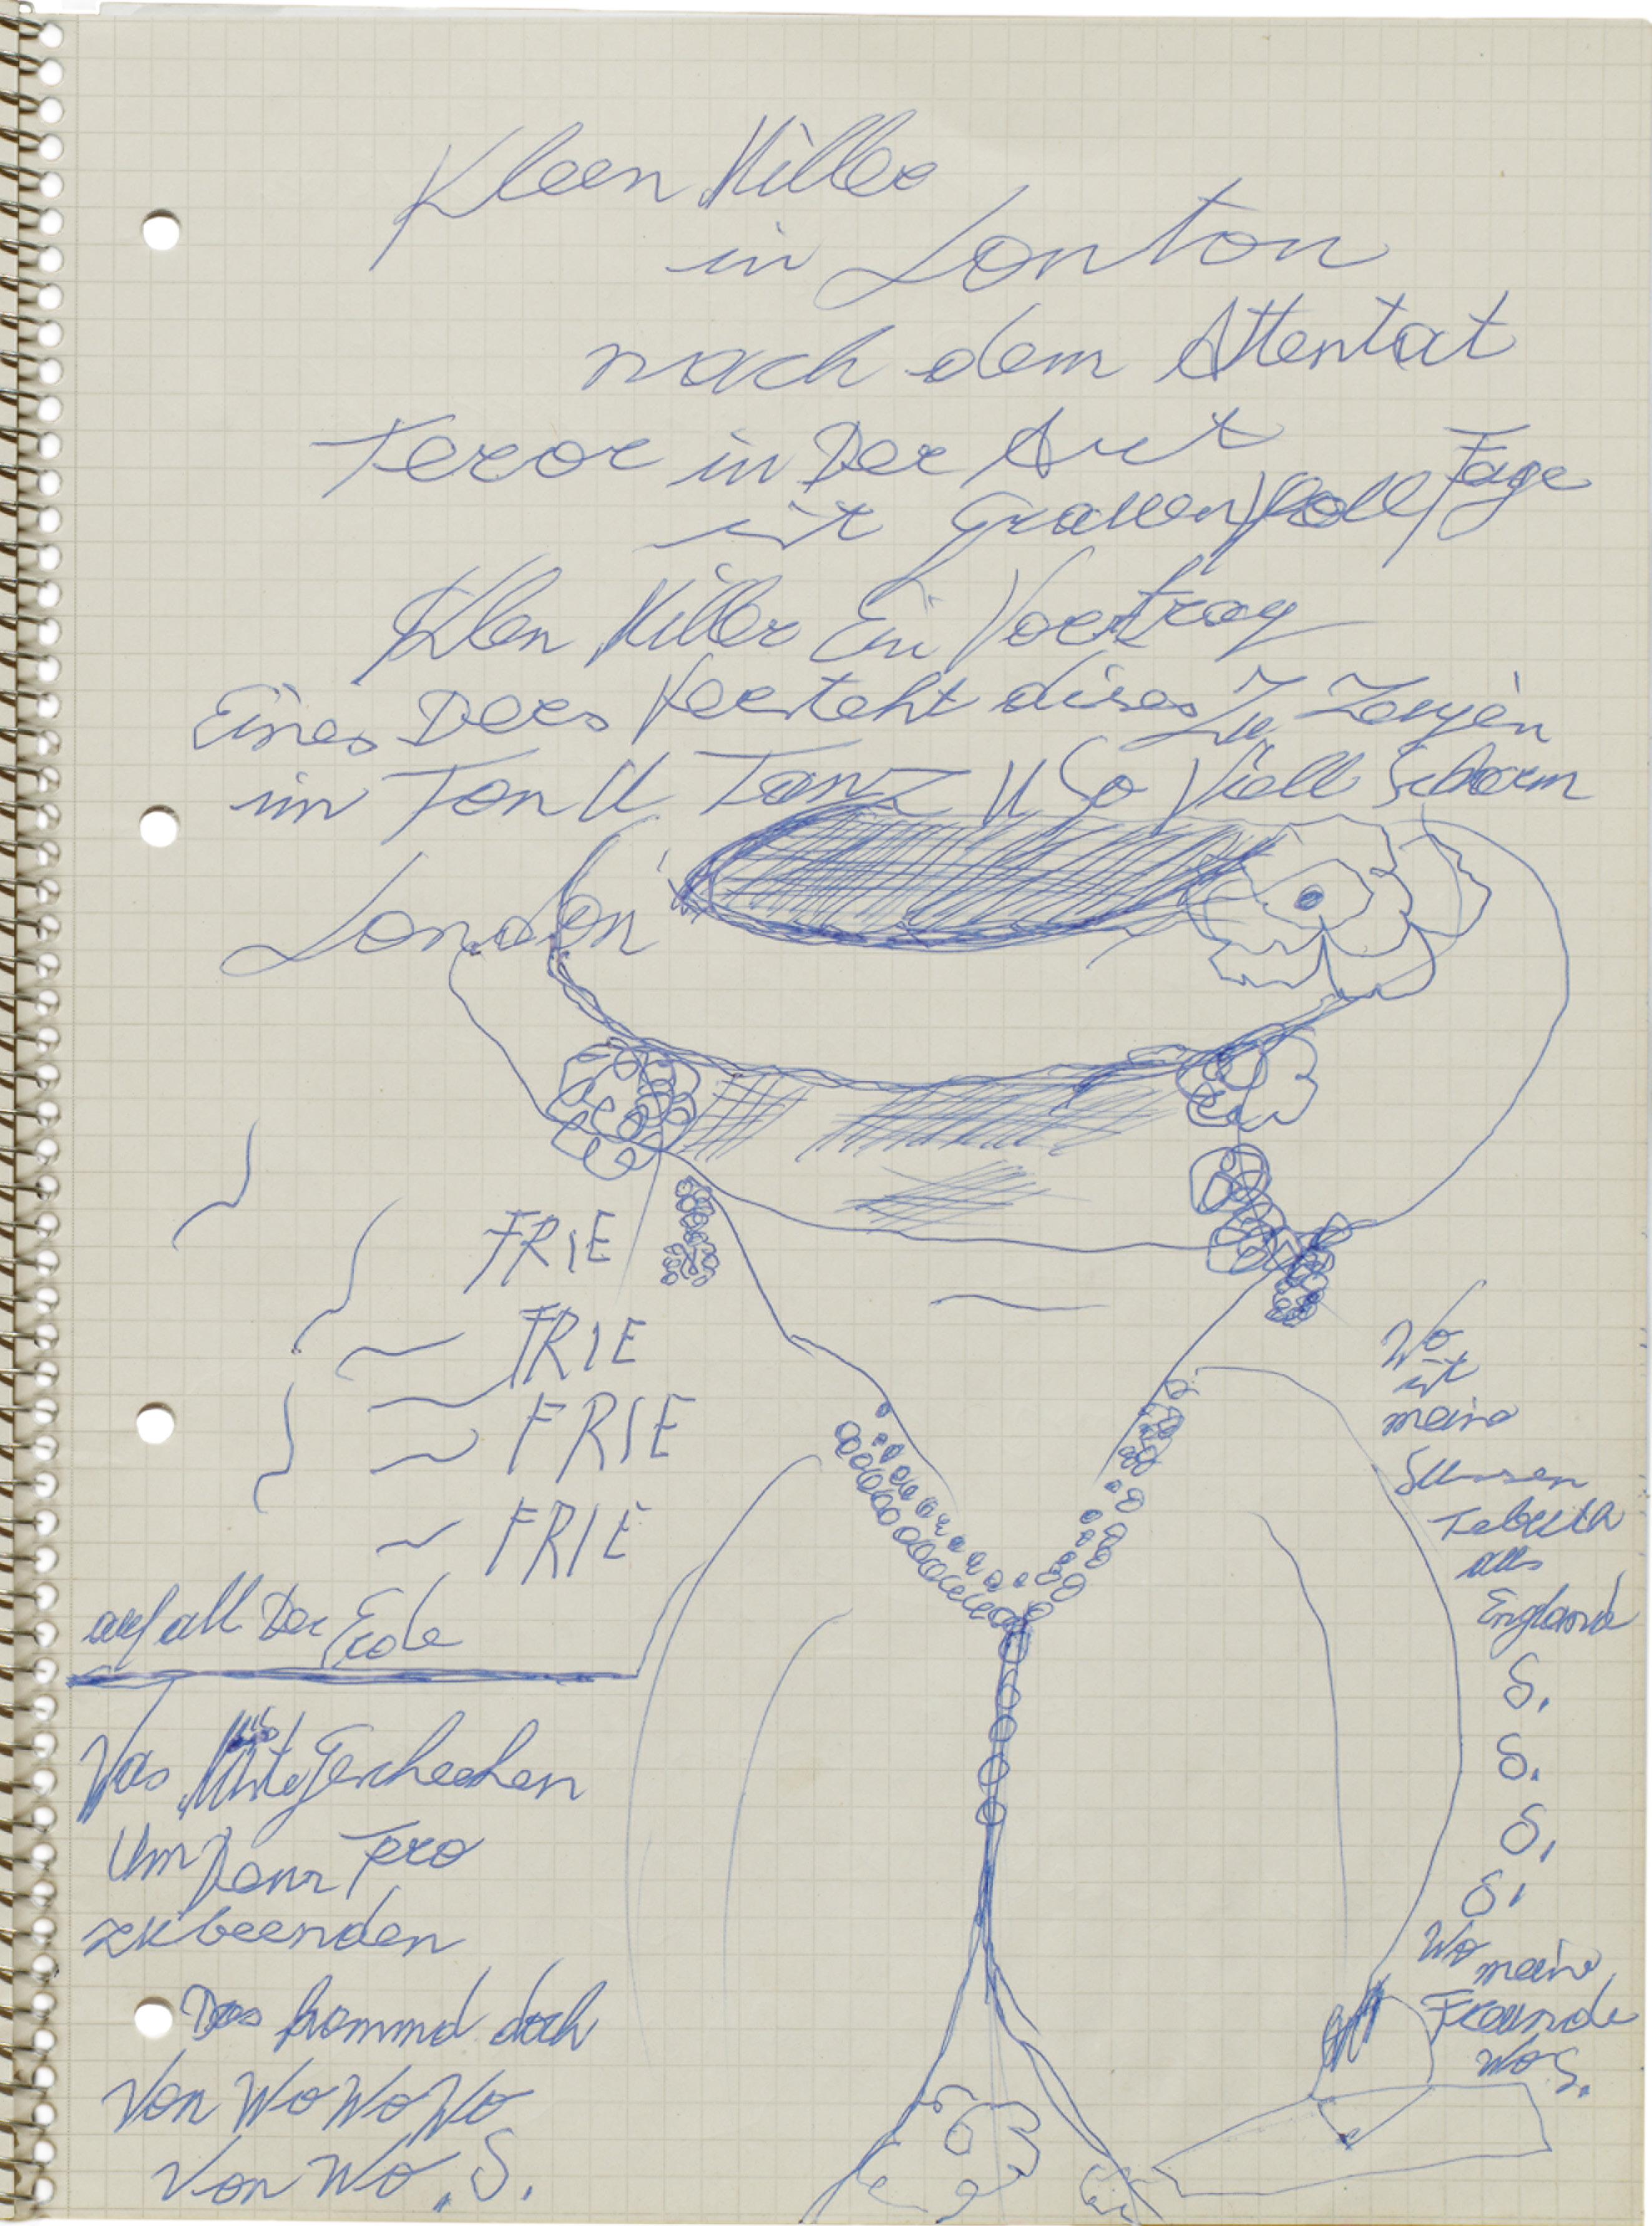 Kleen Killer
in Lonton
nach dem Attentat
Teror in Der Art
Tage
ist Grauenvoll
Klen Killer Ein Vortrag
Eines Ders Versteht dises Zu Zeugen
im Ton U Tanz U So Viell Scharm
London
FRIE
FRIE
FRIE
FRIE
auf all Der Erde
Vas Müste Gescheehen
Um Tero
zu beenden
Das kommd doch
Von Wo Wo Wo
Von Wo . S.
Wo
ist
meine
aus
England
S.
S.
S.
S.
Wo
meine
Freunde
Wo S.